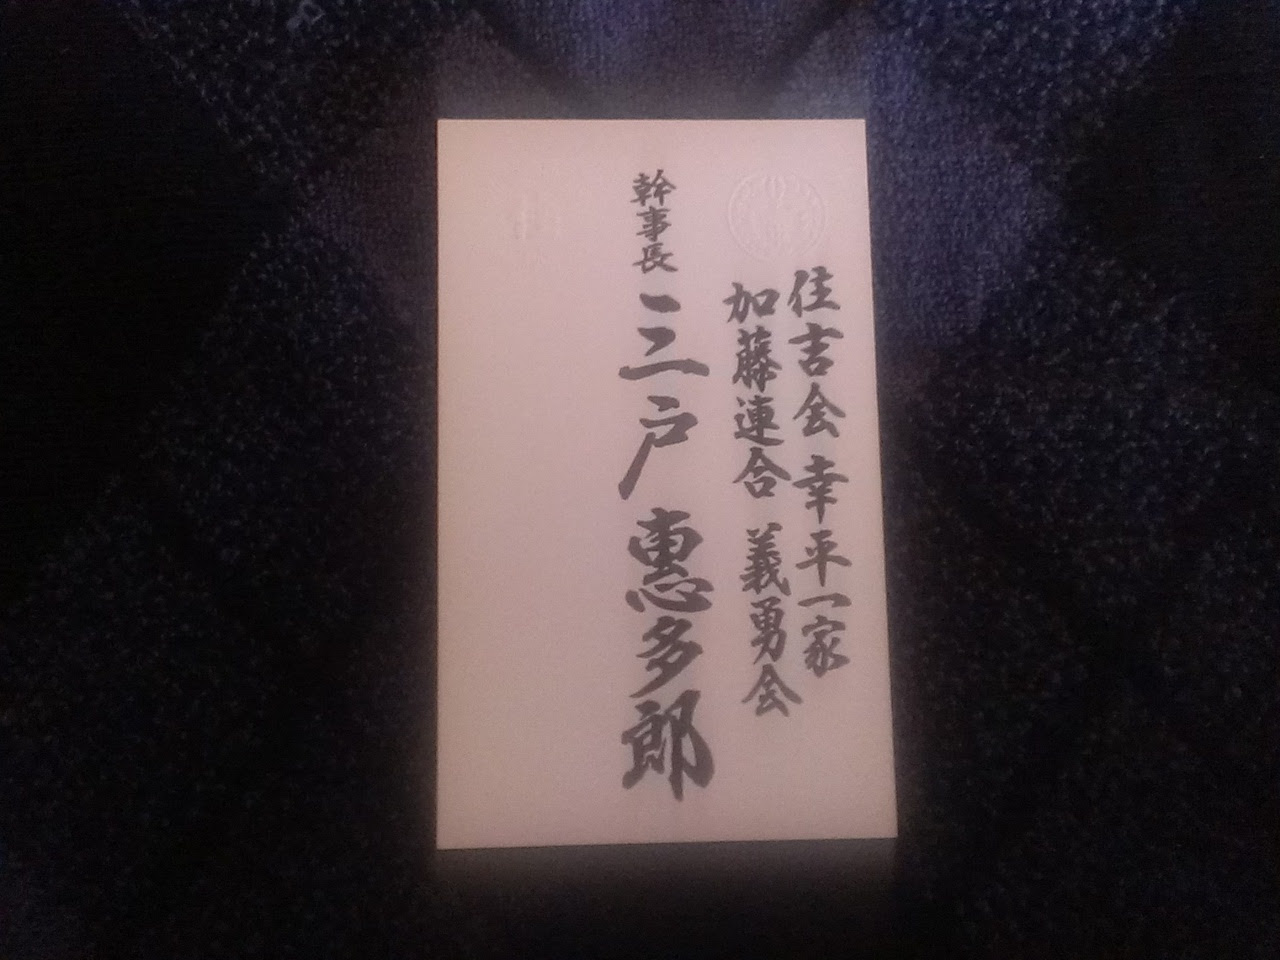 住吉会 幸平一家
加藤連合 義勇会
幹事長 三戸 恵多郎